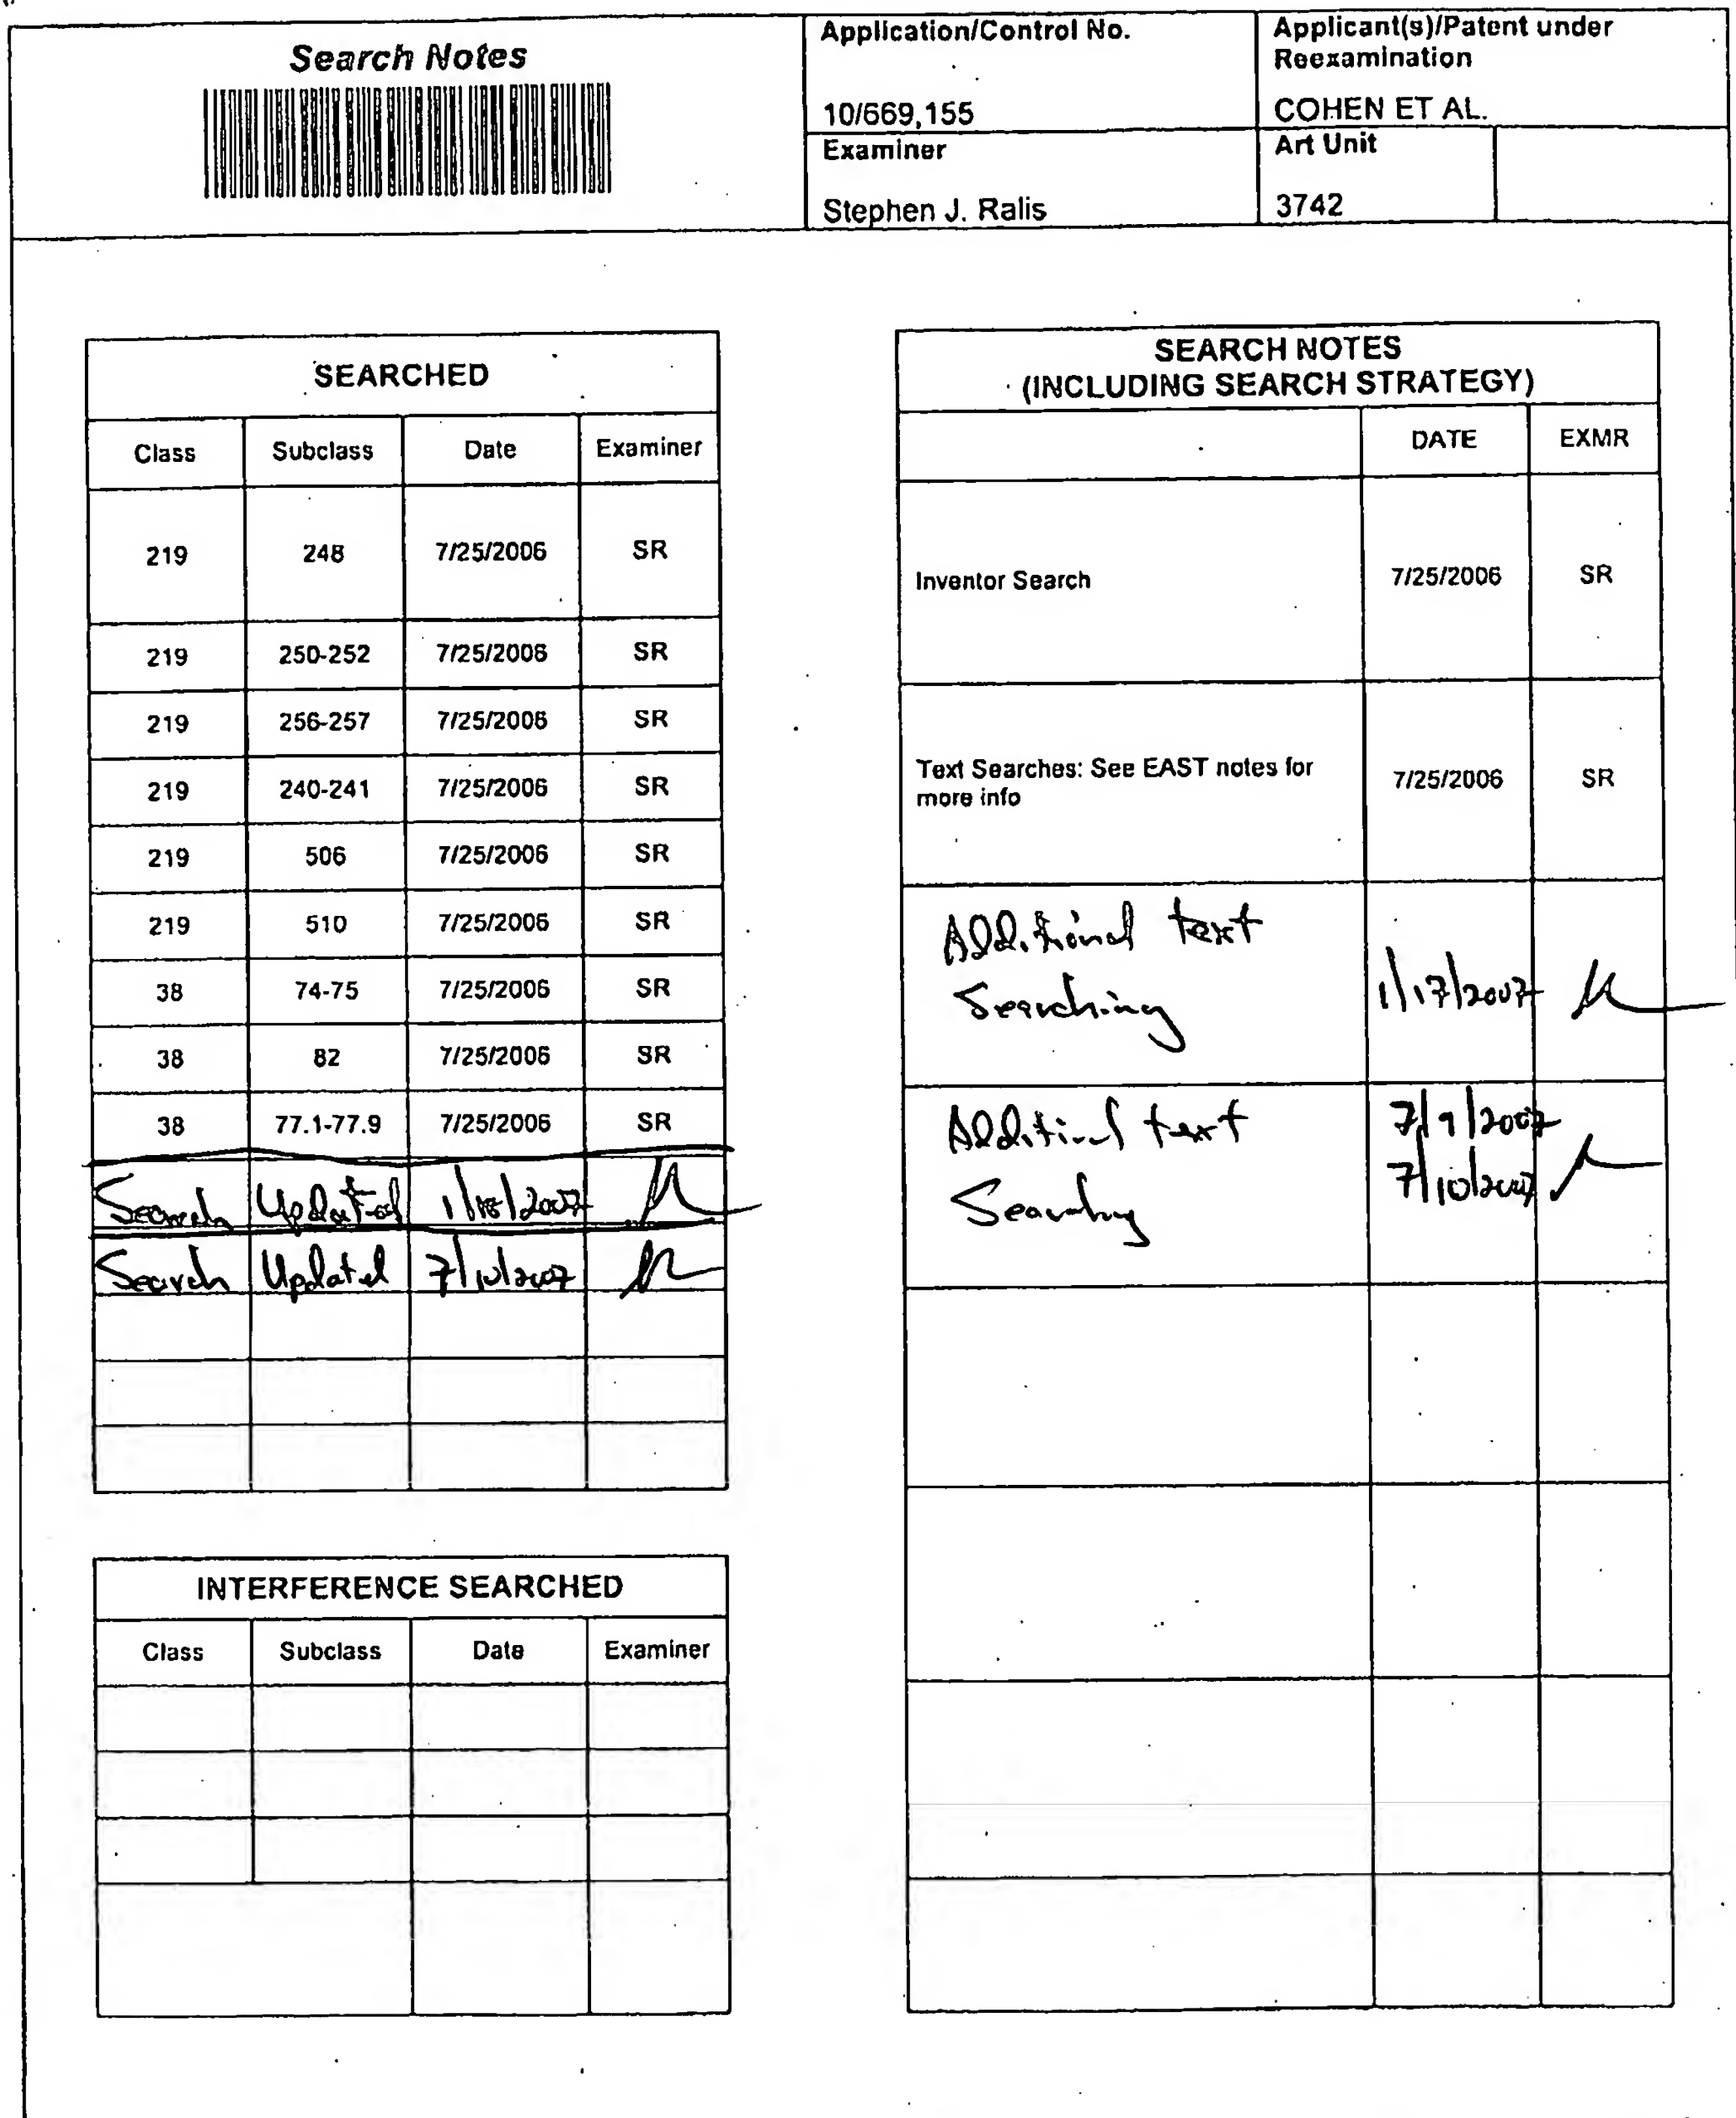 Search Notes
Application/Control No.
10/669,155
Applicant(s)/Patent under
Reexamination
COHEN ET AL.
Examiner
Stephen J. Ralis
Art Unit
3742
SEARCHED
Class Subclass Date Examiner
219 248 7/25/2006 SR
219 250-252 7/25/2006 SR
219 256-257 7/25/2006 SR
219 240-241 7/25/2006 SR
219 506 7/25/2006 SR
219 510 7/25/2006 SR
38 74-75 7/25/2006 SR
38 82 7/25/2006 SR
38 77.1-77.9 7/25/2006 SR
Search Updated 1/18/2007
Search Updated 7/10/2007
INTERFERENCE SEARCHED
Class Subclass Date Examiner
SEARCH NOTES
(INCLUDING SEARCH STRATEGY)
DATE EXMR
Inventor Search 7/25/2006 SR
Text Searches: See EAST notes for
more info 7/25/2006 SR
Additional text
Searching 1/17/2007
Additional text 7/9/2007
Searching 7/10/2007